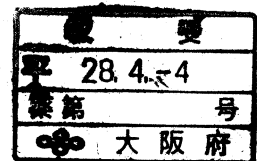 受
28. 4. -4
第 号
大阪府